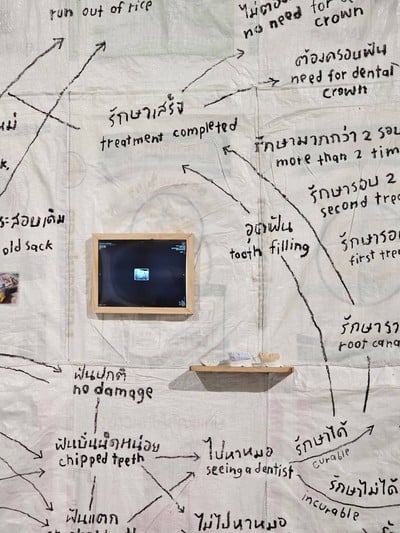 run out of rice
no need for d
crown
ต้องครอบฟัน
need for dental
crown
รักษาเสร็จ
treatment completed
รักษามากกว่า 2 รอบ
more than 2 tim
รักษารอบ 2
second trea
รักษารอ
first trea
อุดฟัน
tooth filling
ะสอบเดิม
old sack
รักษารา
root cana
ฟันปกติ
no damage
ฟันบิ่นนิดหน่อย
chipped teeth
ไปหาหมอ
seeing a dentist
รักษาได้
curable
รักษาไม่ได้
incurable
ฟันแตก
ไม่ไปหาหมอ